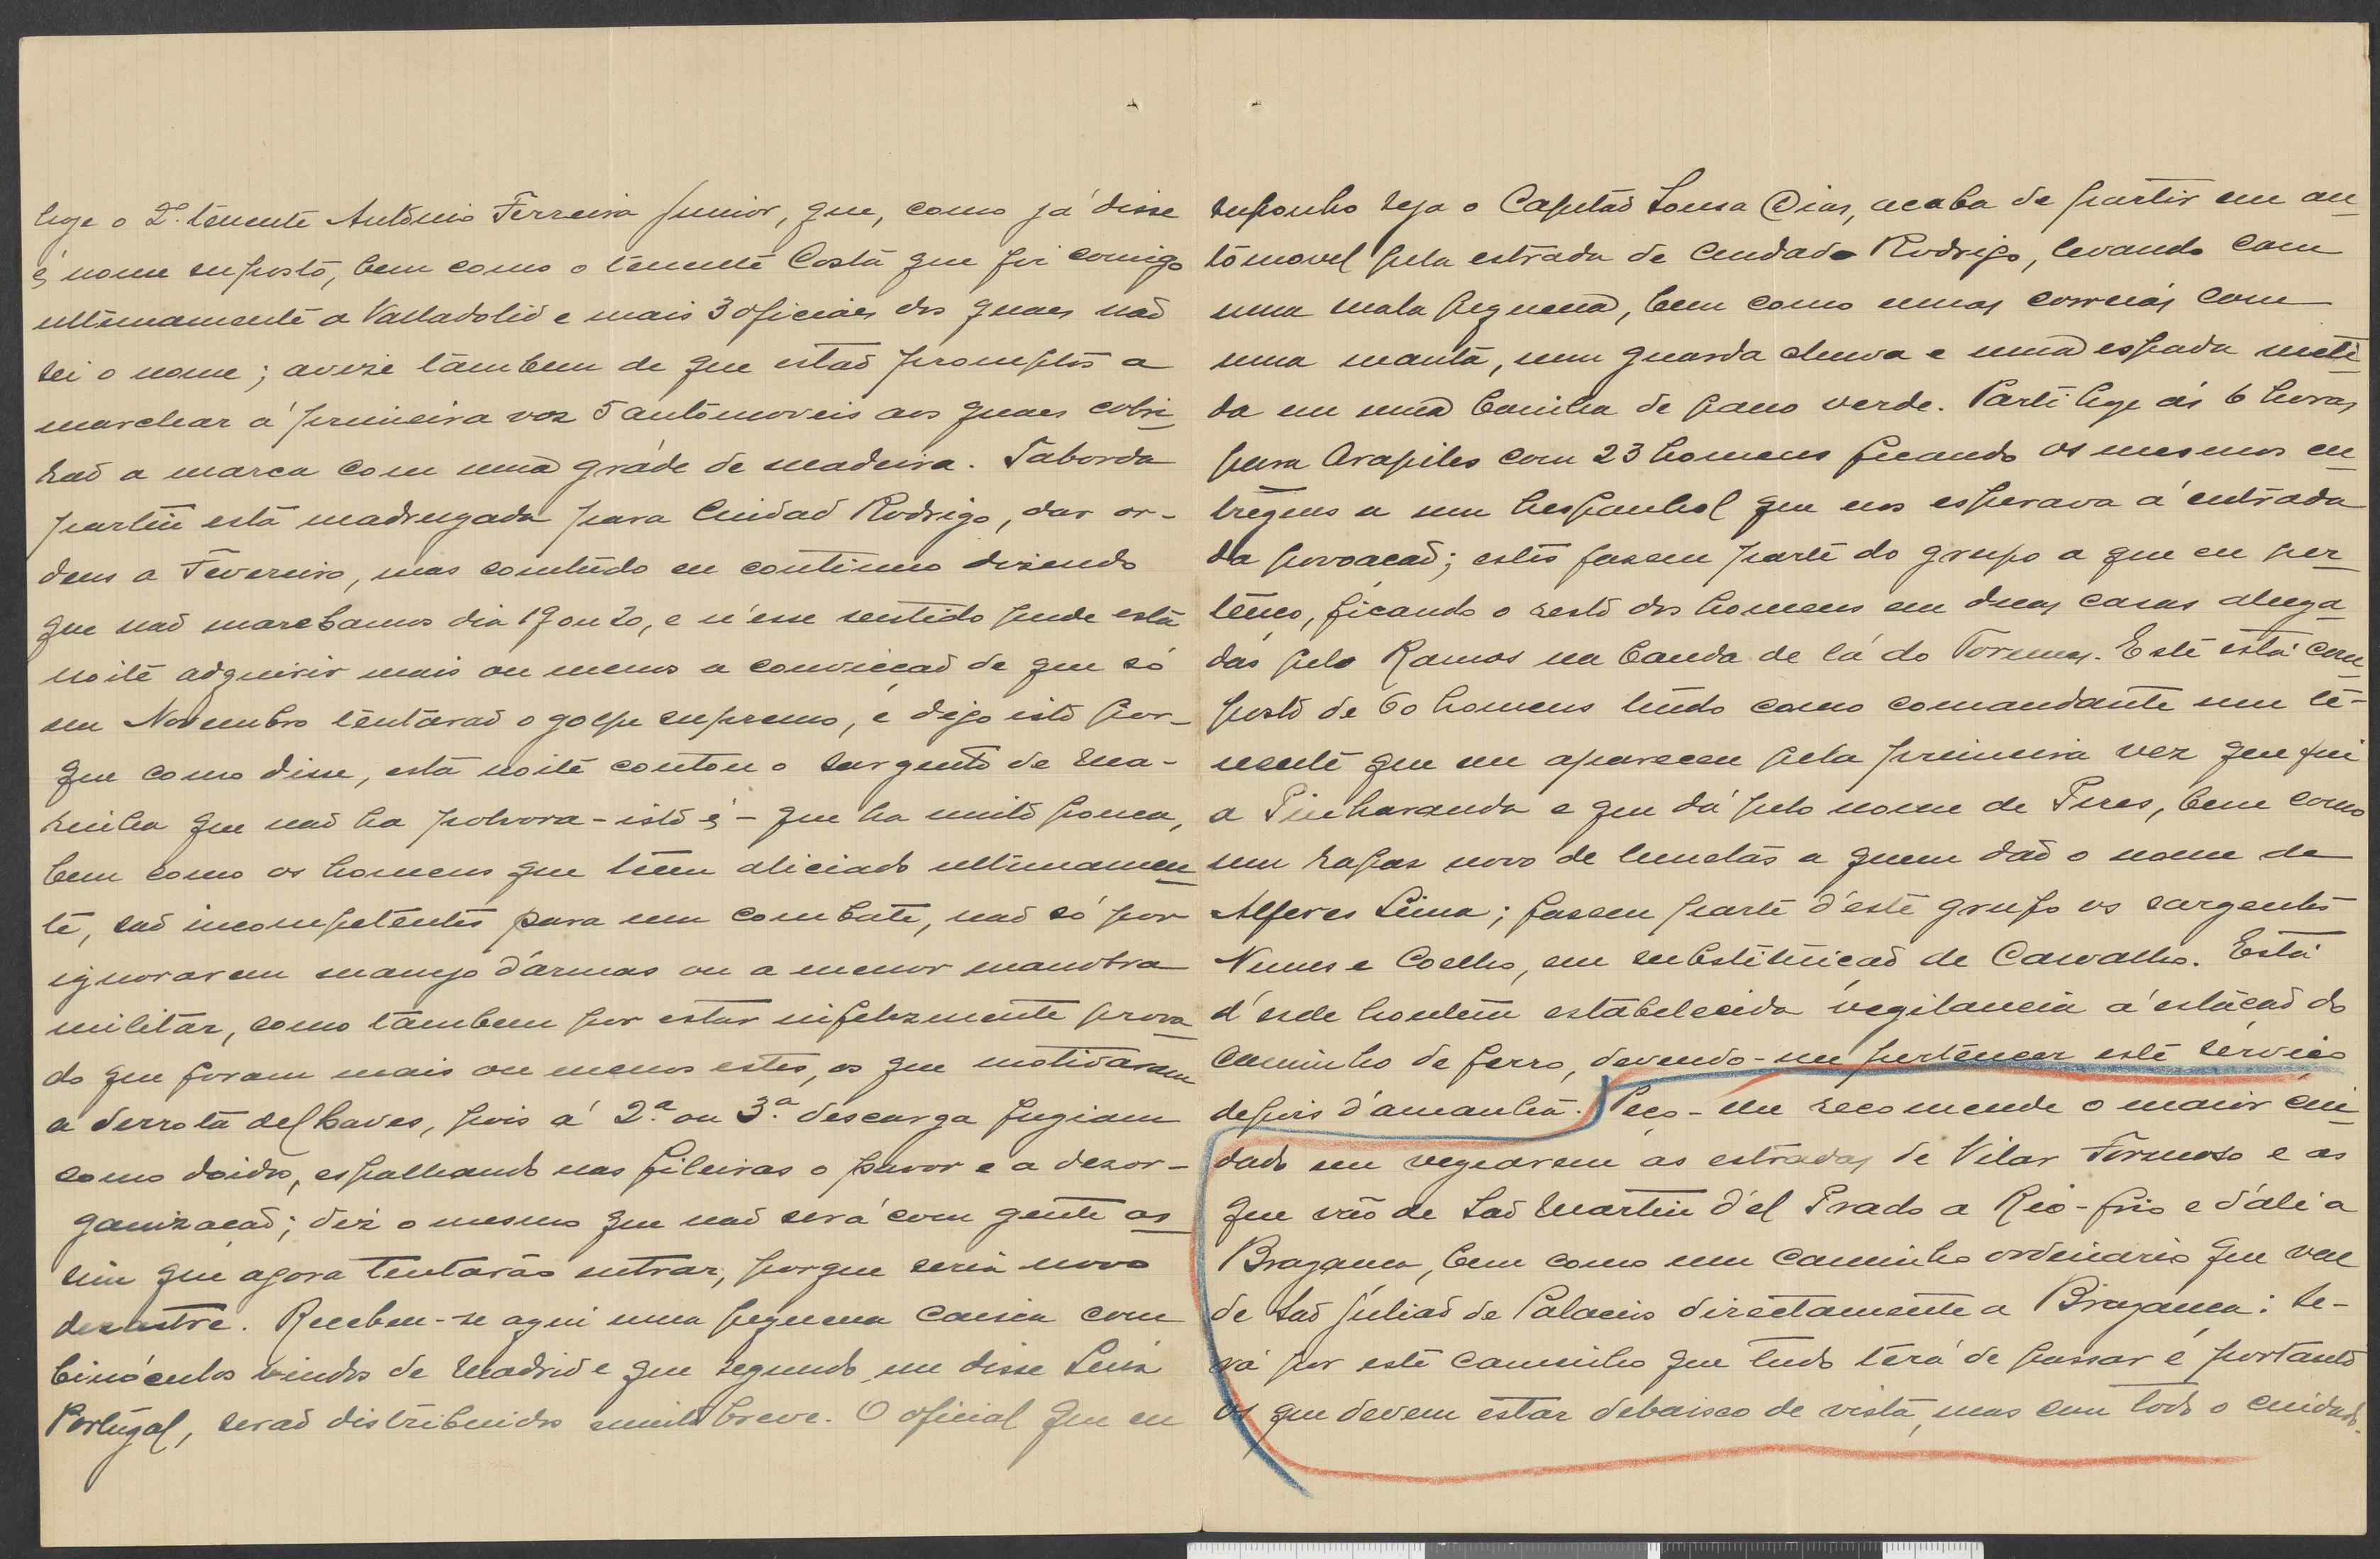 hoje o 2º. tenente António Ferreira Junior, que, como já disse
é nome suposto, bem como o tenente Costa que foi comigo
ultimamente a Valladolid e mais 3 oficiaes dos quaes não
sei o nome; avize tambem de que estão promptos a
marchar á primeira voz 5 automoveis aos quaes cobri
rão a marca com uma grade de madeira. Taborda
partiu esta madrugada para Ciudad Rodrigo, dar or-
dens a Fevereiro, mas comtudo eu continuo dizendo
que não marchamos dia 19 ou 20, e n'esse sentido pude esta
noite adquirir mais ou menos a convicção de que só
em Novembro tentarão o golpe supremo, e digo isto por-
que como disse, esta noite contou o sargento de ma-
rinha que não ha polvora - isto é - que ha muito pouca,
bem como os homens que teem aliciado ultimamen
te, são incompetentes para um combate, não só por
ignorarem manejo d'armas ou a menor manobra
militar, como tambem por estar infelizmente prova
do que foram mais ou menos estes, os que motivaram
a derrota de Chaves, pois á 2.ª ou 3.ª descarga fugiam
como doidos, espalhando nas fileiras o pavor e a dezor-
ganização; diz o mesmo que não será com gente as
sim que agora tentarão entrar, porque seria novo
dezastre. Recebeu-se aqui uma pequena caixa com
binóculos vindos de Madrid e que segundo me disse Luiz
Portugal, serão distribuidos muito breve. O oficial que eu
suponho seja o Capitão Sousa Dias, acaba de partir em au
tomovel pela estrada de Ciudade Rodrigo, levando com
uma mala pequena, bem como umas correias com
uma manta, um guarda chuva e uma espada meti
da em uma bainha de pano verde. Parti hoje ás 6 horas
para Arapiles com 23 homens ficando os mesmos en
tregues a um hespanhol que nos esperava á entrada
da povoação; estes fazem parte do grupo a que eu per
tenço, ficando o resto dos homens em duas casas aluga
das pelo Ramos na banda de lá do Tormes. Este está com
posto de 60 homens tendo como comandante um te-
nente que me apareceu pela primeira vez que fui
a Pinharanda e que dá pelo nome de Pires, bem como
um rapaz novo de lunetas a quem dão o nome de
Alferes Lima; fazem parte d'este grupo os sargentos
Nunes e Coelho, em substituição de Carvalho. Está
d'esde hontem estabelecida vegilancia á estação do
Caminho de ferro, devendo-me pertencer este serviço
depois d'amanhã. Peço-lhe recomende o maior cui
dado em vegiarem as estradas de Vilar Formoso e as
que vão de São Martin d'el Prado a Rio-frio e d'ali a
Bragança, bem como um caminho ordinario que vae
de São Julião de Palacios directamente a Bragança: se-
rá por este caminho que tudo terá de passar e portanto
os que devem estar debaixo de vista, mas com todo o cuidado.